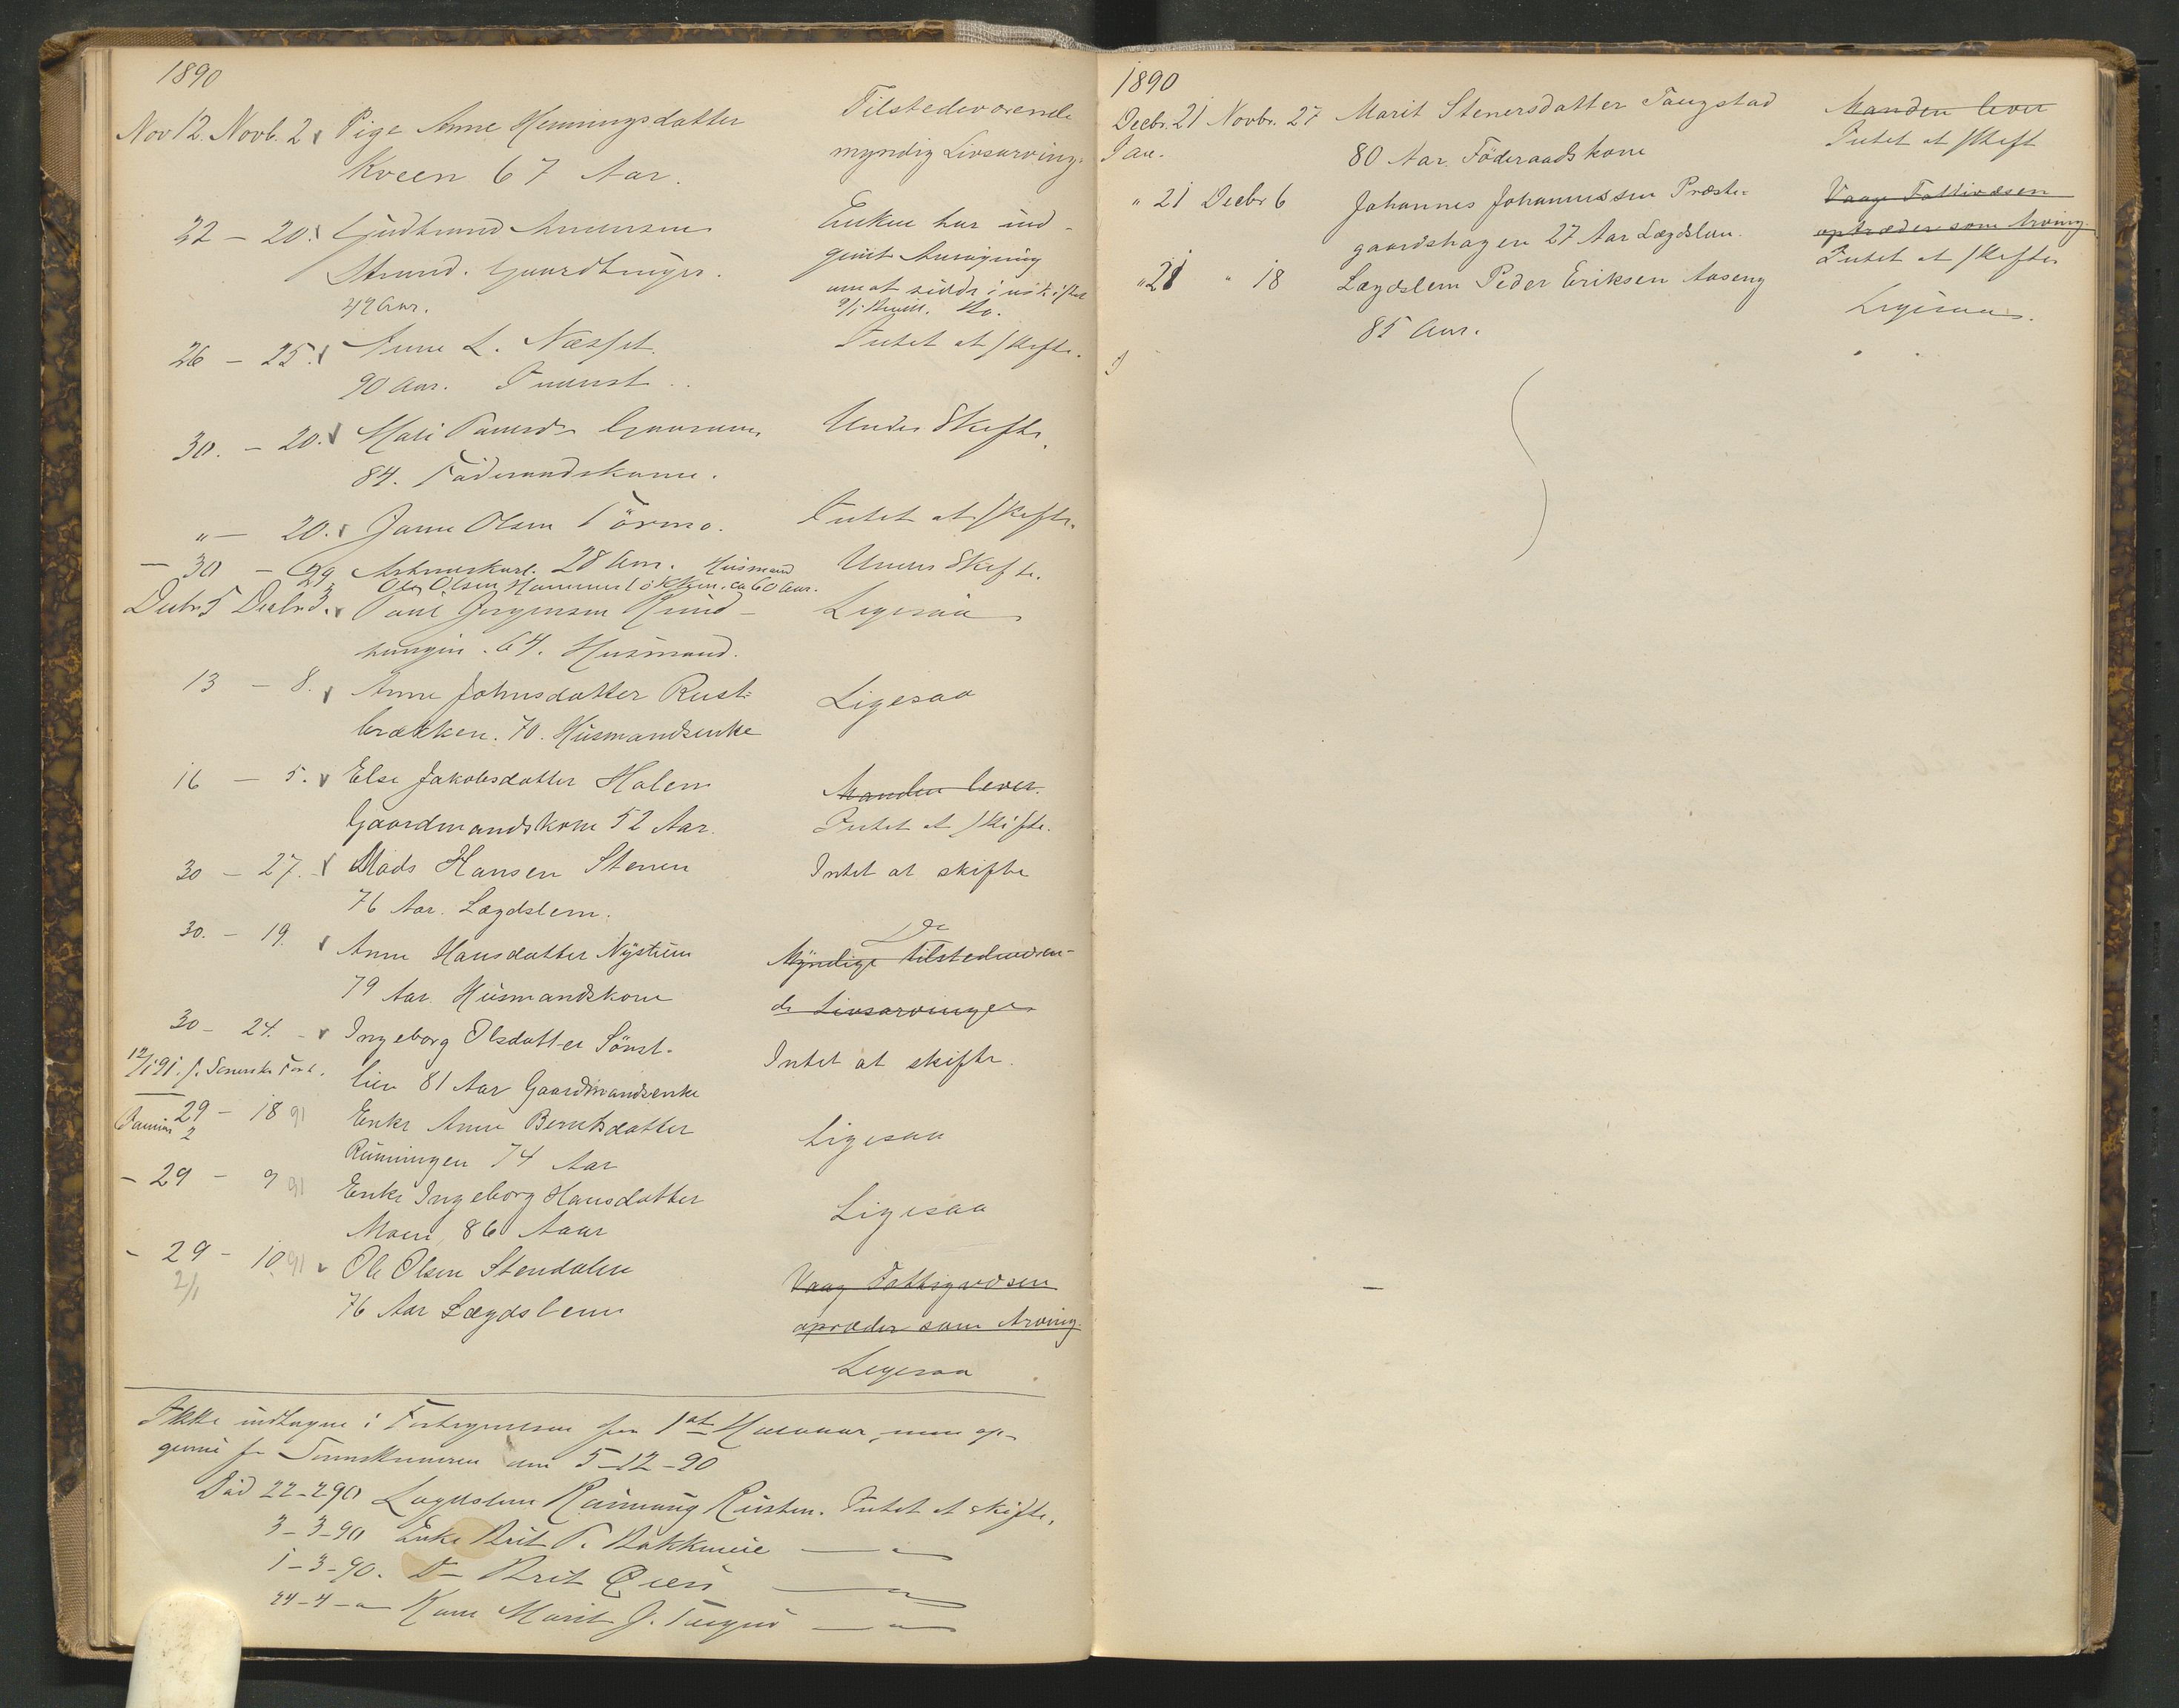 1890
Nov 12. Novb. 2 Pige Anne Henningsdatter Tilstedeværende
Kveen 67 Aar. myndig Livsarving.
22 - 20. Gudbrand Amundsen Enken har ind-
Strand. Gaardbruger. givet Ansøgning
49 Aar. om at sidde i uskiftet
26 - 25. Anne L. Næsset. Intet at skifte.
90 Aar.
30. - 20. Mari Gaarum Under Skifte.
84. Föderaadskone.
" - 20. Olsen Törmo. Intet at skifte.
- 30 - 29 28 Aar. Husmand Under Skifte.
Ole Olsen ca 60 Aar.
Decbr 5 Decbr 3. Paul Jørgensen Rind- Ligesaa
hungen. 64. Husmand.
13 - 8. Anne Johnsdatter Rust- Ligesaa
brækken. 70. Husmandsenke
16 - 5. Else Jakobsdatter Holen Manden lever.
Gaardmandskone 52 Aar. Intet at skifte.
30 - 27. Mads Hansen Stenen Intet at skifte
76 Aar. Lægdslem.
30. - 19. Anne Hansdatter Nystuen Do Myndige tilstedeværen-
79 Aar. Husmandskone de Livsarvinger
30 - 24. - Ingeborg Olsdatter Sönst- Intet at skifte.
12/1 91. f. lien 81 Aar Gaardmandsenke
29 - 18 91 Enke Anne Berntsdatter Ligesaa
Januar 2 Rünningen 74 Aar
- 29 - 9 91 Enke Ingeborg Hansdatter Ligesaa
Moen, 86 Aaar
- 29 - 10 91 Ole Olsen Stendalen Vaag Fattigvæsen
2/1 76 Aar Lægdslem opræder som Arving.
Ligesaa
Ikke indtagne i Fortegnelsen for 1st Halvaar, men op-
givne fr Lensmanden den 5-12-90
Död 22-2 90 Lægdslem Rönnaug Rusten. Intet at skifte.
3-3-90 Enke Brit P. Bakkemeie - " -
1-3-90. Do Brit Øien - " -
24-4-" Kone Marit J. - " -
1890
Decbr. 21 Novbr. 27 Marit Stenersdatter Taugstad Manden lever
Jan. 80 Aar. Föderaadskone Intet at skift
" 21 Decbr 6 Johannes Johannessen Præste- Vaage Fattivæsen
gaardshagen 27 Aar Lægdslem. optræder som Arving.
Intet at skifte
" 21 " 18 Lægdslem Peder Eriksen Aaseng Ligesaa.
85 Aar.